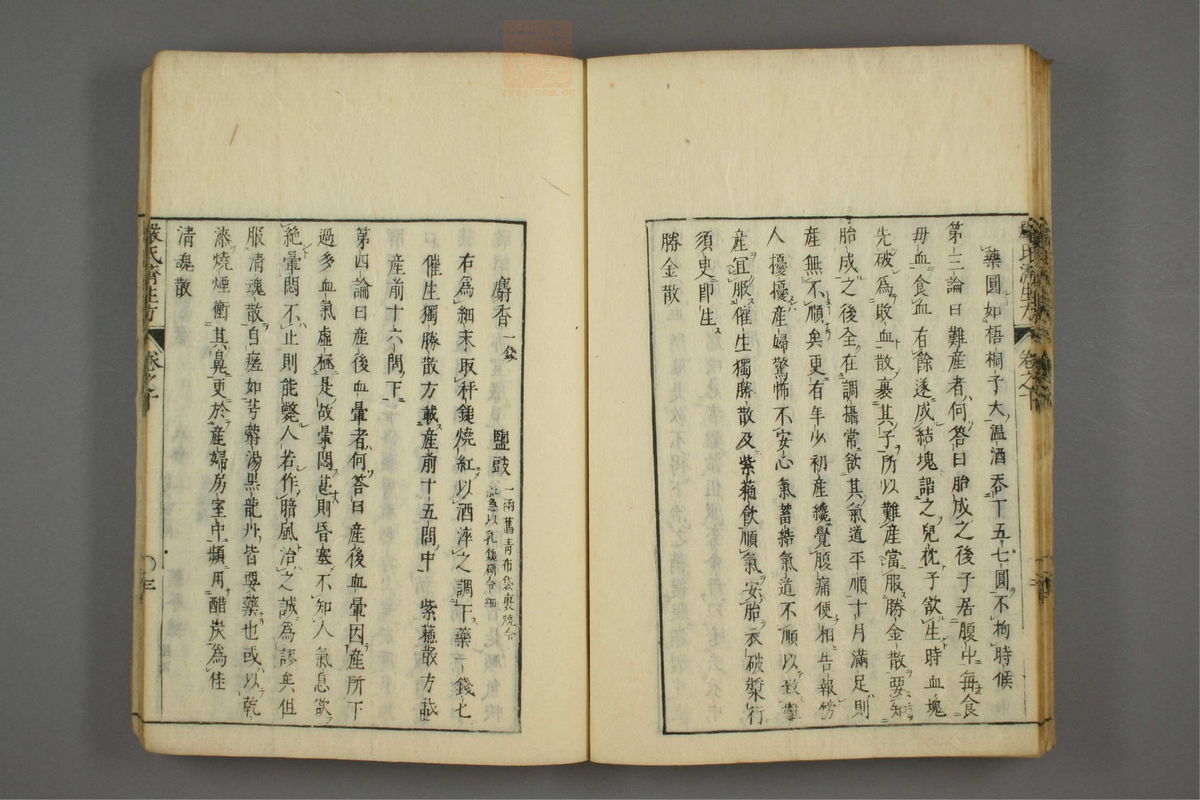 藥圓如梧桐子大温酒吞下五七圓不拘時候
第三論曰難産者何答曰胎成之後子居腹中毎食
母血食血有餘遂成結塊謂之兒枕子欲生時血塊
先破為敗血散裹其子所以難産當服勝金散要知
胎成之後全在調攝常飲其氣道平順十月滿足則
産無不順矣更有年少初産纔覺腹痛便相告報傍
人擾擾産婦驚怖不安心氣蓄結氣道不順以致難
産宜服催生獨勝散及紫蘓飲順氣安胎衣破漿行
須臾即生
勝金散
麝香一錢 鹽豉一兩舊青布袋裹燒令紅急以乳鉢研令細
右為細末取秤鎚燒紅以酒淬之調下藥一錢七
催生獨勝散方載産前十五問中 紫蘓散方載
産前十六問下
第四論曰産後血暈者何答曰産後血暈因産所下
過多血氣虚極是故暈悶甚則昏塞不知人氣息欲
絶暈悶不止則能斃人若作暗風治之誠為謬矣但
服清魂散自瘥如芎藭湯黒龍丹皆要藥也或以乾
漆燒煙衝其鼻更於産婦房室中頻用醋炭為佳
清魂散
嚴氏濟生方 卷之十